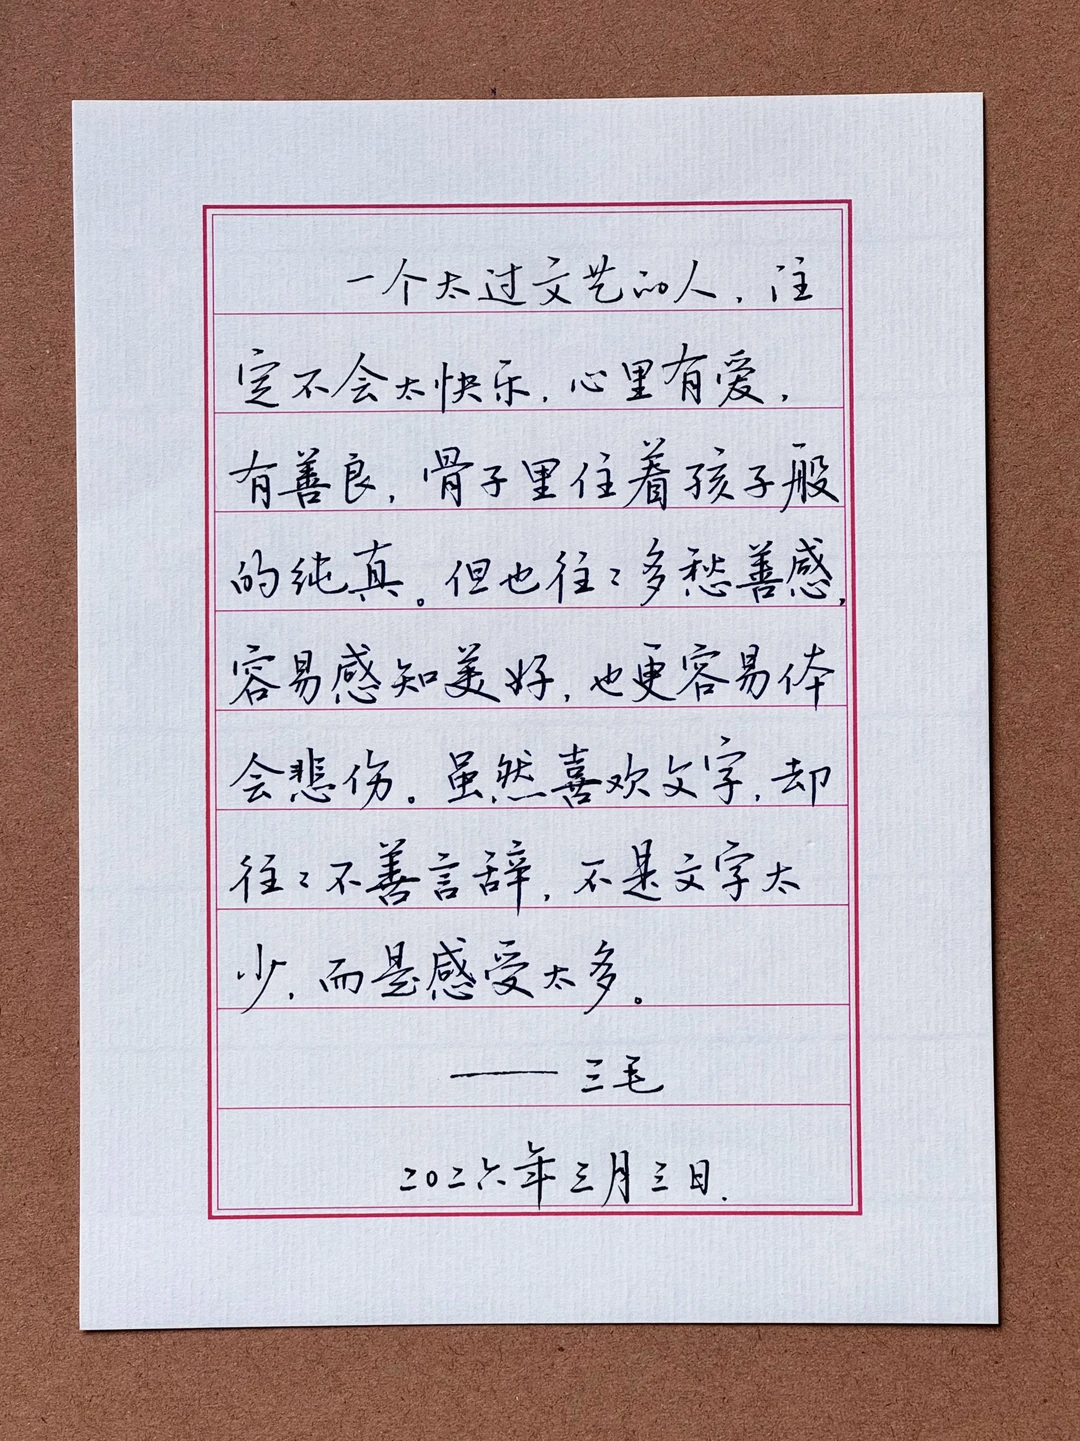 一个太过文艺的人，注
定不会太快乐，心里有爱，
有善良，骨子里住着孩子般
的纯真。但也往〻多愁善感，
容易感知美好，也更容易体
会悲伤。虽然喜欢文字，却
往〻不善言辞，不是文字太
少，而是感受太多。
——三毛
二〇二六年三月三日.